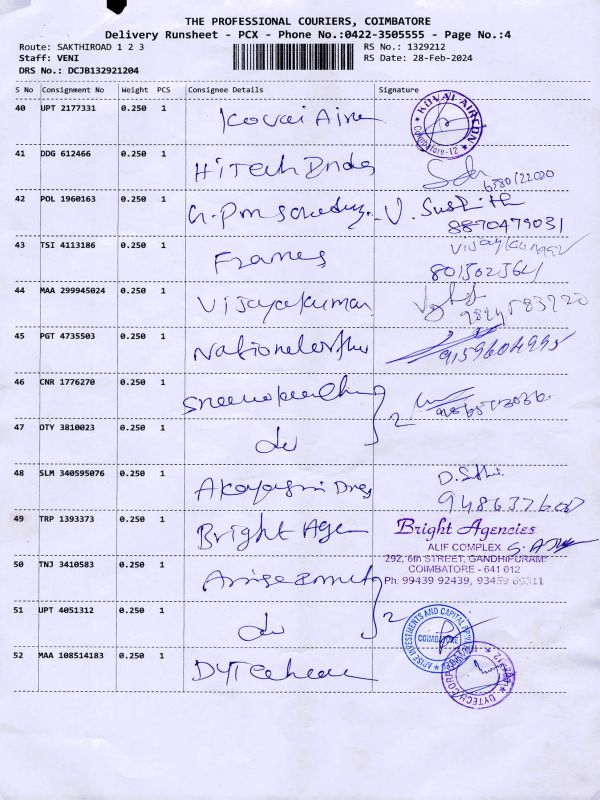 THE PROFESSIONAL COURIERS, COIMBATORE
Delivery Runsheet - PCX - Phone No.:0422-3505555 - Page No.:4
Route: SAKTHIROAD 1 2 3 RS No.: 1329212
Staff: VENI RS Date: 28-Feb-2024
DRS No.: DCJB132921204
S No Consignment No Weight PCS Consignee Details Signature
40 UPT 2177331 0.250 1 Kovai Aire KOVAI AIRCON Coimbatore-12
41 DDG 612466 0.250 1 HiTech Indus
42 POL 1960163 0.250 1 G.Pm V. Sushith
8870479031
43 TSI 4113186 0.250 1 Frames Vijaykumar
44 MAA 299945024 0.250 1 Vijayakumar
45 PGT 4735503 0.250 1 9159604995
46 CNR 1776270 0.250 1 2
47 DTY 3810023 0.250 1 do
48 SLM 340595076 0.250 1 D.
49 TRP 1393373 0.250 1 Bright Agen Bright Agencies
ALIF COMPLEX
292, 6th STREET, GANDHIPURAM
COIMBATORE - 641 012
50 TNJ 3410583 0.250 1 Ph: 99439 92439, 93459 69311
51 UPT 4051312 0.250 1 do 2 ARISE INVESTMENTS AND CAPITAL COIMBATORE
52 MAA 108514183 0.250 1 DYTech DYTECH CORPORATION